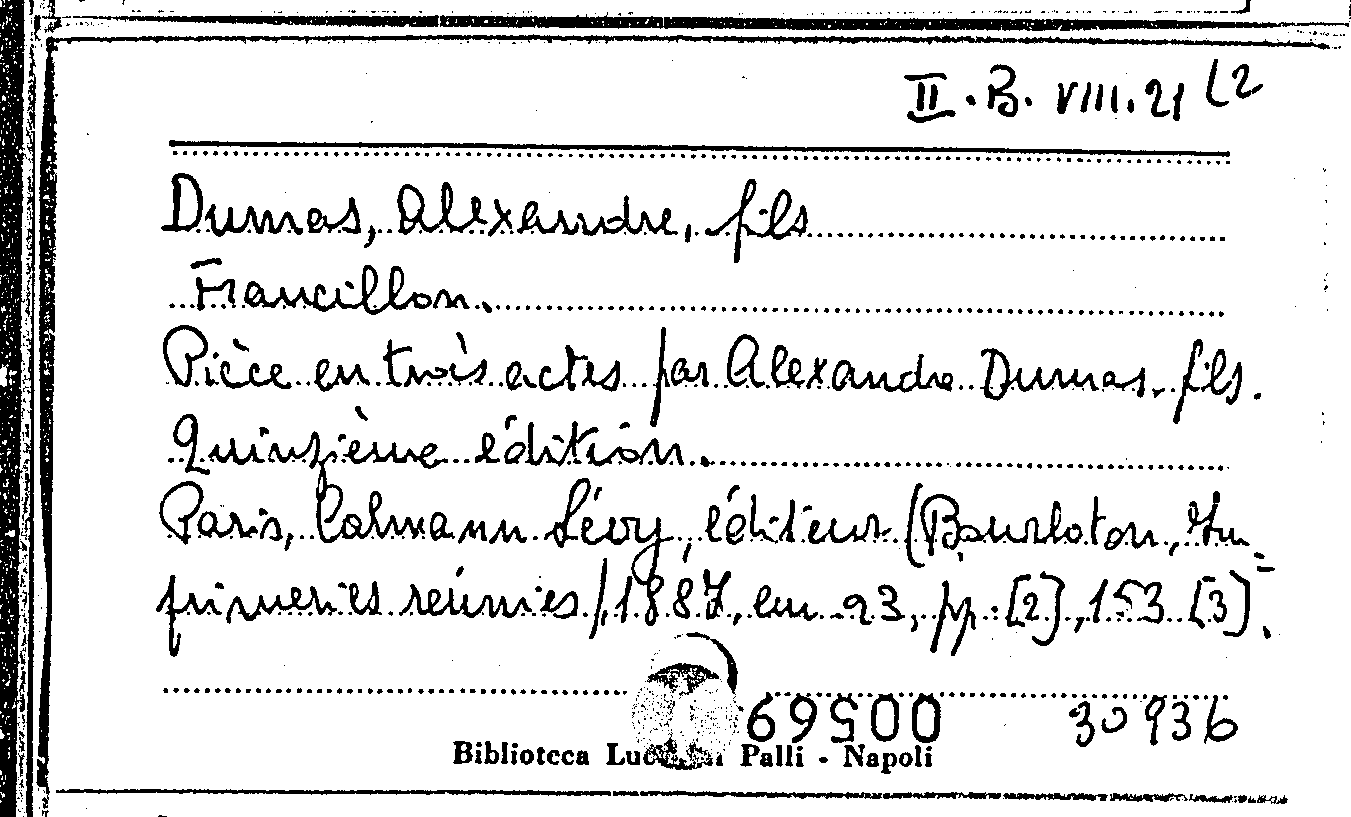 II. B. VIII. 21 (2
Dumas, Alexandre, fils
Francillon.
Pièce en trois actes par Alexandre Dumas fils.
Quinzième édition.
Paris, Calmann Lévy, éditeur (Bourloton, Im=
primeries réunies), 1887, cm 23, pp. [2], 153 [3].
69500 30936
Biblioteca Palli - Napoli